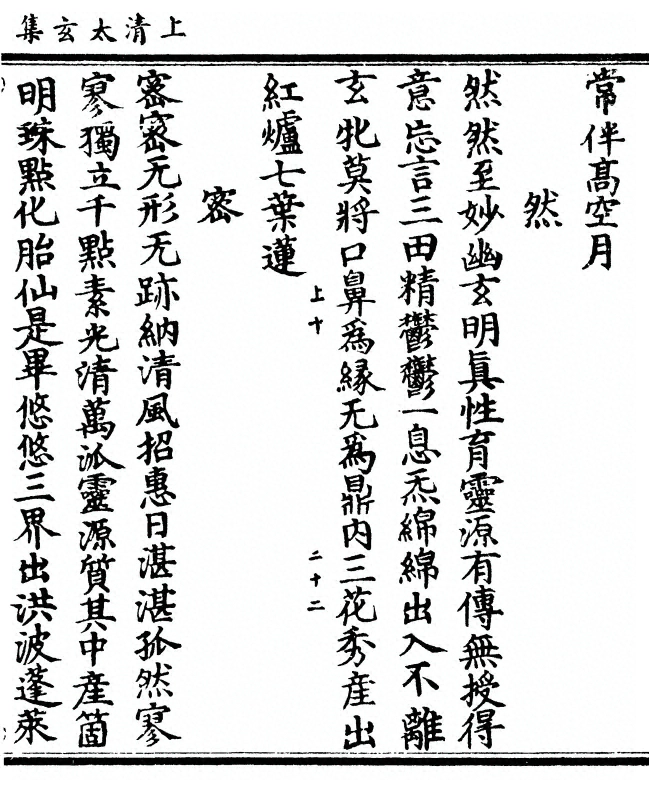 上清太玄集
常伴高空月
然
然然至妙幽玄明真性育靈源有傳無授得
意忘言三田精鬱鬱一息炁綿綿出入不離
玄牝莫將口鼻為緣无為鼎內三花秀產出
紅爐七葉蓮
上十
二十二
密
密密无形无跡納清風招惠日湛湛孤然寥
寥獨立千點素光清萬派靈源質其中產箇
明珠點化胎仙是畢悠悠三界出洪波蓬萊